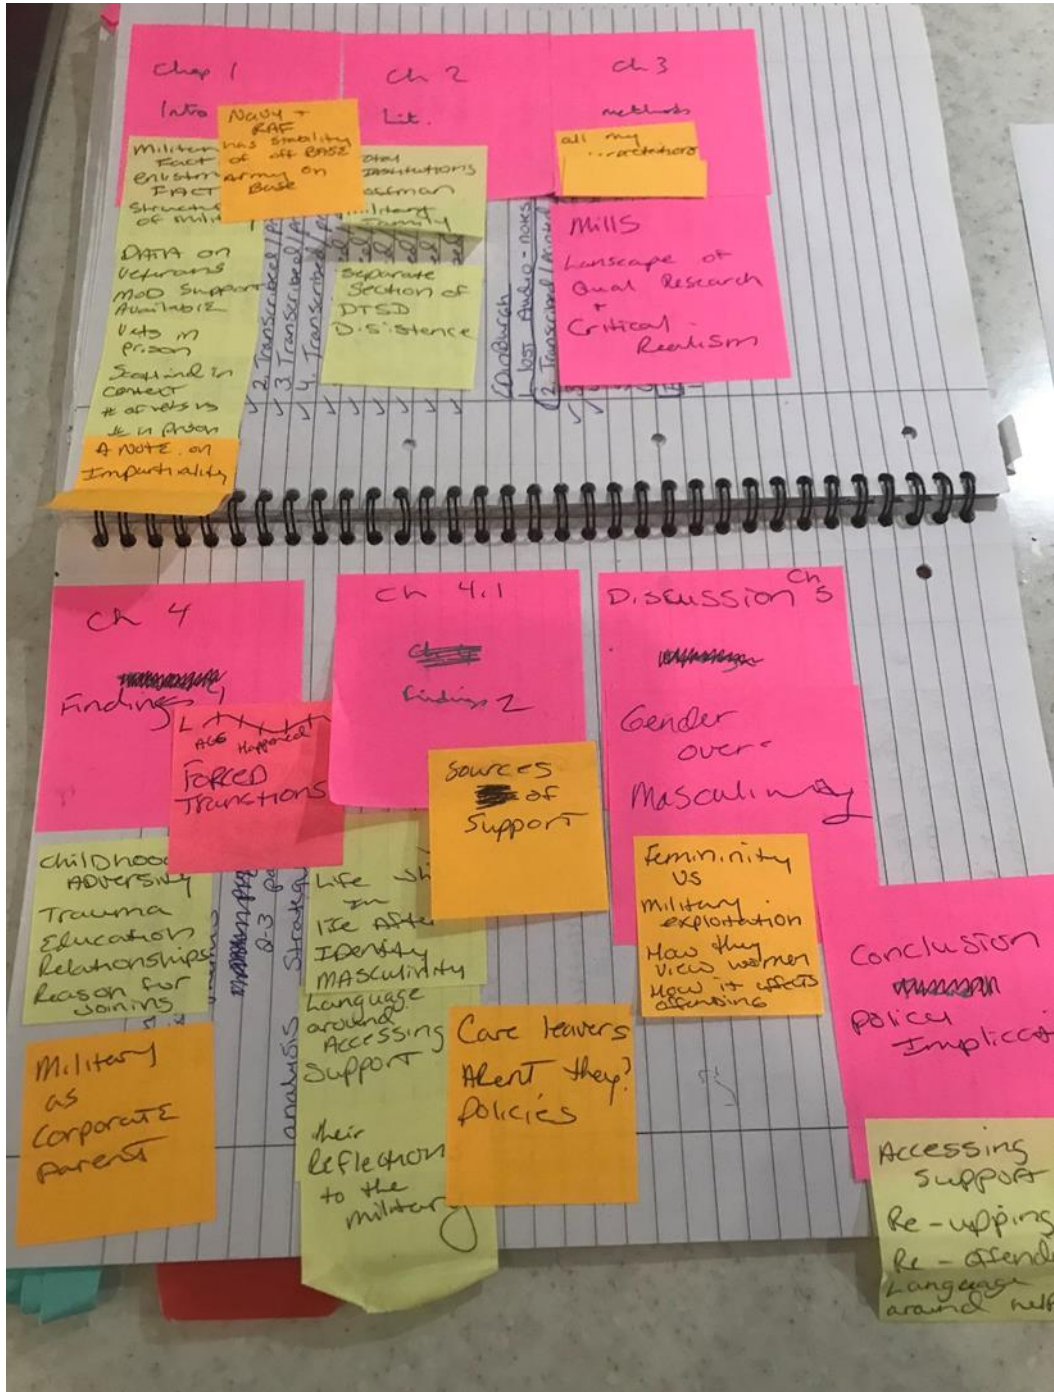 Chap 1
Intro
Navy +
RAF
has stability
of off BASE
Army on
Base
Militar
Fact
enlistm
FACT
Structu
of milit
DATA on
Veterans
MoD Support
Available
Vets in
prison
Scotland in
context
# of vets vs
# in prison
A NOTE on
Impartiality
2. Transcribed/
3. Transcribed/
4. Transcribed/
Ch 2
Lit.
otal
Institutions
offman
military
Family
Separate
Section of
DTSD
Disistence
Ch 3
methods
all my
Mills
Lanscape of
Qual Research
+
Critical
Realism
Edinburgh
1. lost Audio-notes
2. Transcribed/Printed
Ch 4
Findings 1
AGE Happened
FORCED
Transtions
ChilDhood
ADVERSITY
Trauma
Education
Relationships
Reason for
Joining
Military
as
Corporate
parent
2-3
analysis Strateg
Ch 4.1
Findings 2
Sources
of
Support
Life
In
life After
Identity
MASCULINITY
Language
around
Accessing
Support
their
Reflection
to the
military
Care leavers
ARENT they?
Policies
Discussion Ch 5
Gender
over
Masculinity
Femininity
VS
Military
exploitation
How they
view women
How it effects
offending
Conclusion
policy
Implicati
Accessing
Support
Re-upping
Re-offend
Language
around help